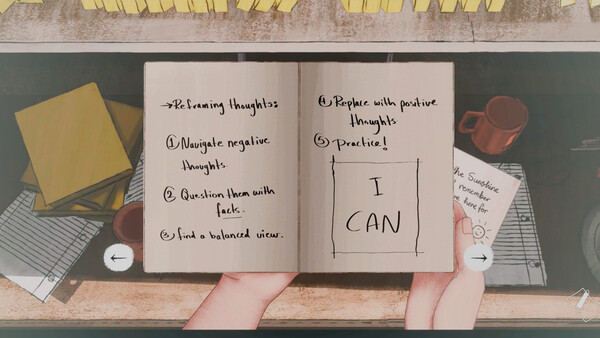 →Reframing thoughts:
① Navigate negative
thoughts.
② Question them with
facts.
③ find a balanced view.
④ Replace with positive
thoughts
⑤ Practice!
I
CAN
the Sunshine
remember
here for